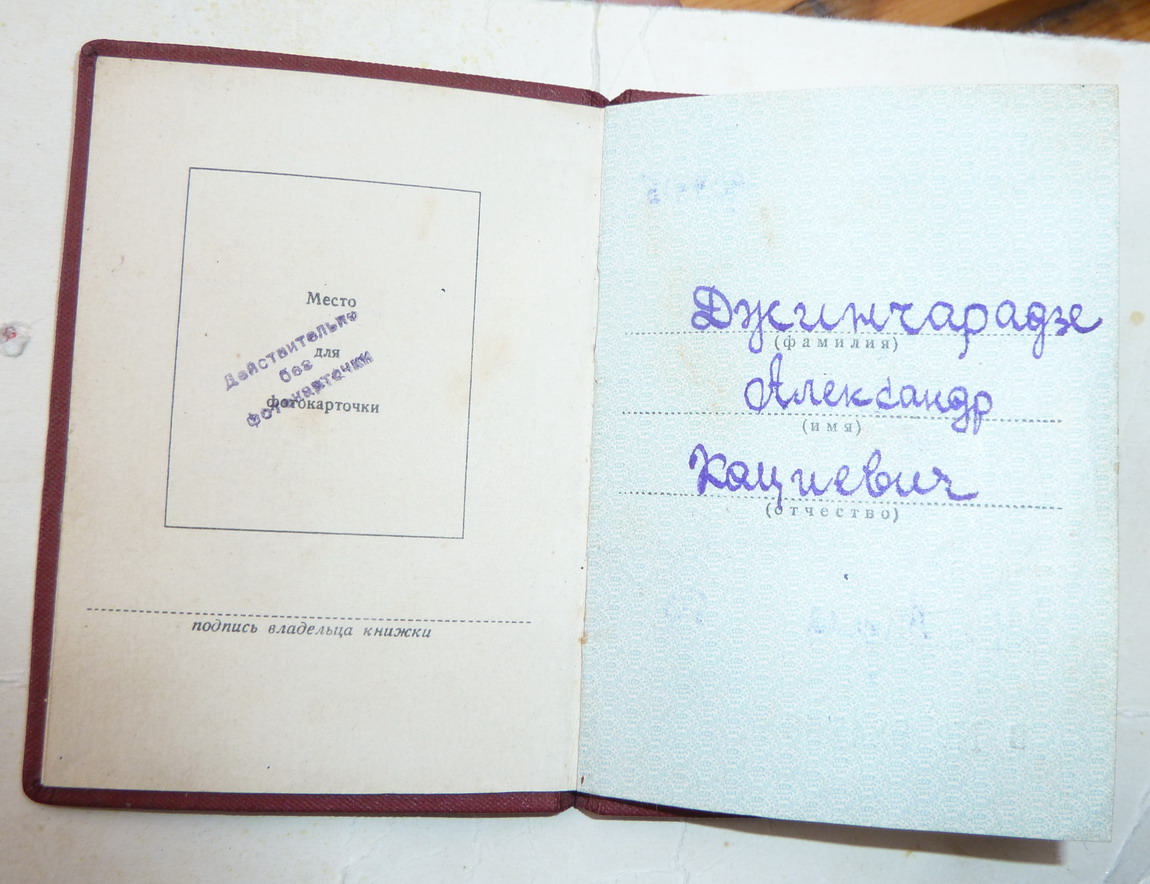 Место
для
фотокарточки
Действительно
без
фотокарточки
подпись владельца книжки
Джинчарадзе
(фамилия)
Александр
(имя)
Кациевич
(отчество)